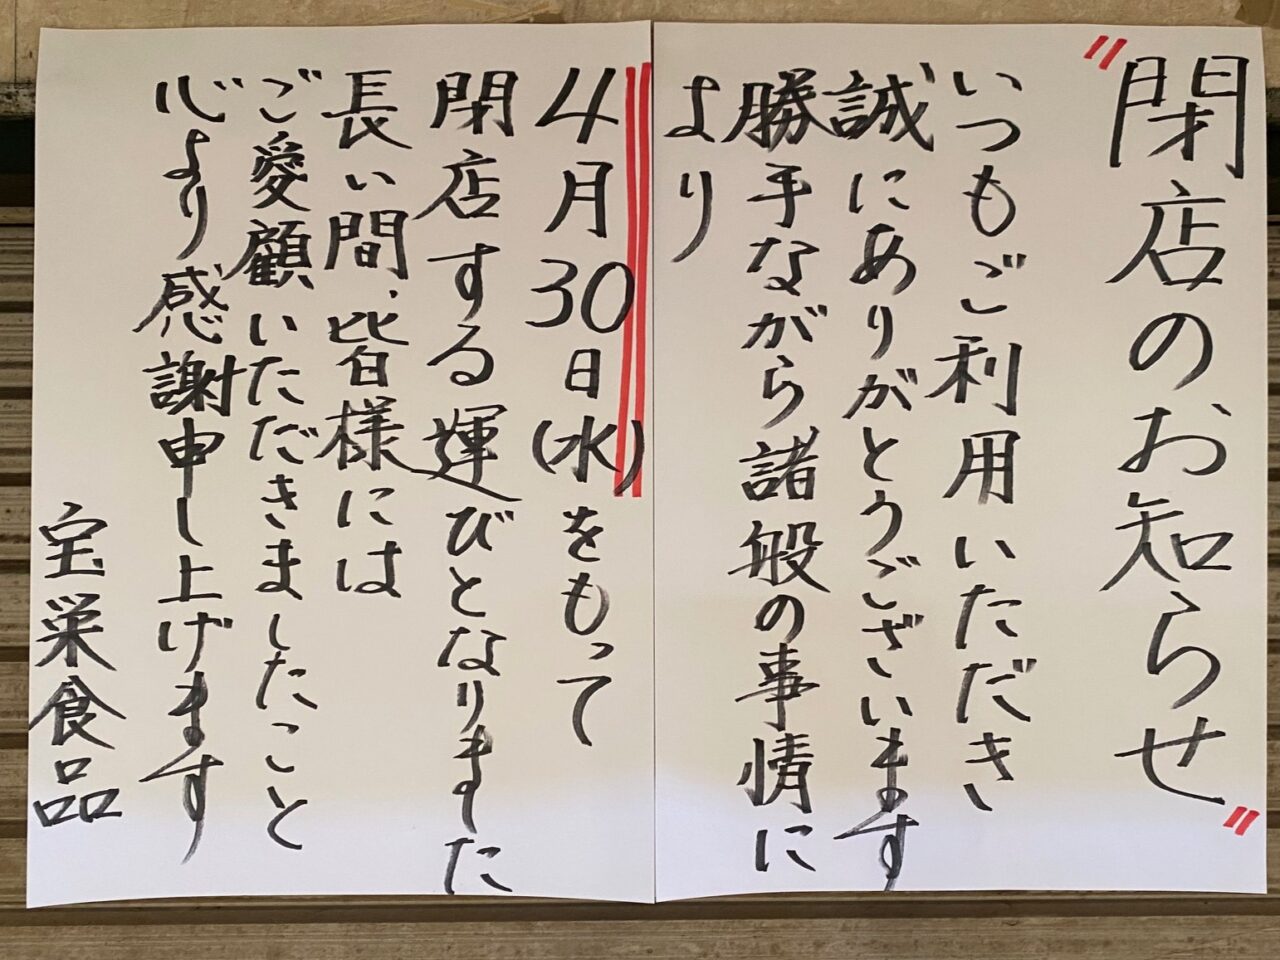 〃閉店のお知らせ〃
いつもご利用いただき
誠にありがとうございます
勝手ながら諸般の事情に
より
4月30日(水)をもって
閉店する運びとなりました
長い間、皆様には
ご愛顧いただきましたこと
心より感謝申し上げます
宝栄食品